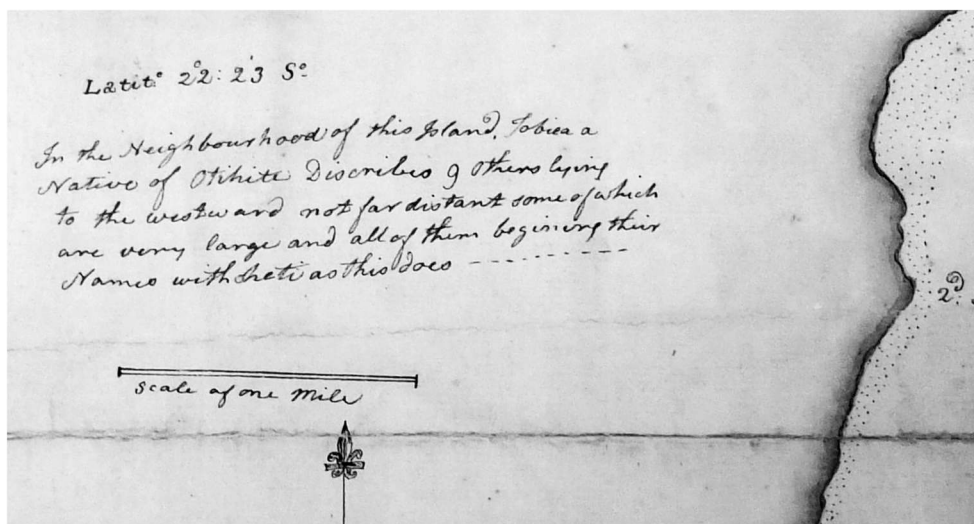 Latit.º 22º: 23' Sº.
In the Neighbourhood of this Island, Tobiea a
Native of Otihite Discribies 9 Others lying
to the westward not far distant some of which
are very large and all of them begining their
Names with Oheti as this does
Scale of one Mile
2.d